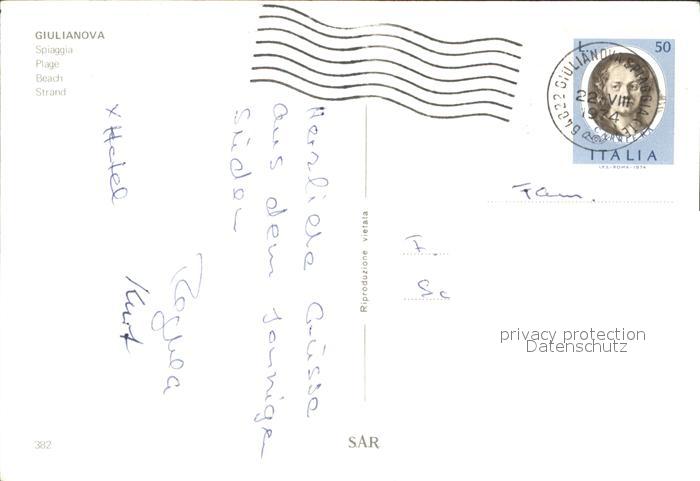 GIULIANOVA
Spiaggia
Plage
Beach
Strand
L. 50
64022 GIULIANOVA SPIAGGIA (TE)
22.VIII
1974
ITALIA
I.P.S.-ROMA-1974
x Hotel
Herzliche Grüsse
aus dem sonnigen
Süden
Kurt
Riproduzione vietata
Fam.
F.
Sc
privacy protection
Datenschutz
382
SAR